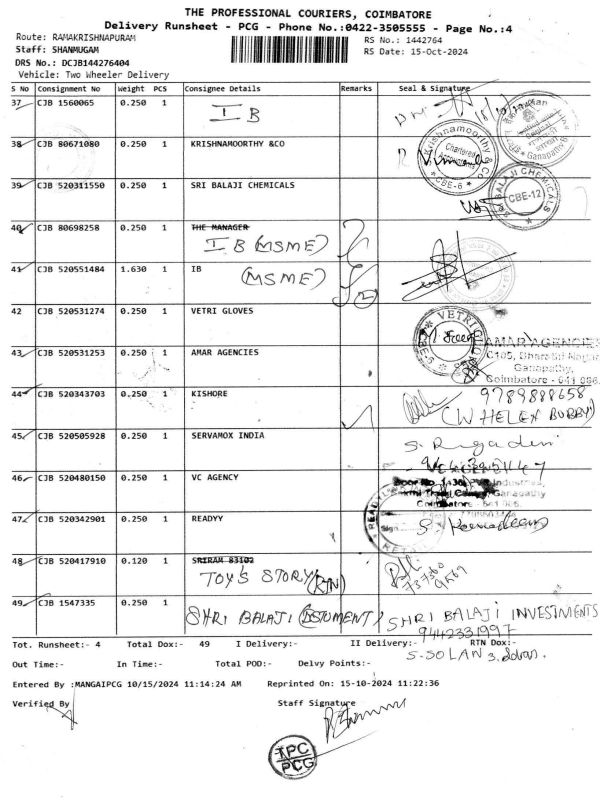 THE PROFESSIONAL COURIERS, COIMBATORE
Delivery Runsheet - PCG - Phone No.:0422-3505555 - Page No.:4
Route: RAMAKRISHNAPURAM
RS No.: 1442764
Staff: SHANMUGAM
RS Date: 15-Oct-2024
DRS No.: DCJB144276404
Vehicle: Two Wheeler Delivery
S No Consignment No Weight PCS Consignee Details Remarks Seal & Signature
37 CJB 1560065 0.250 1 IB
38 CJB 80671080 0.250 1 KRISHNAMOORTHY &CO
Krishnamoorthy & Co
Chartered
CBE-6
Ganapathy
39 CJB 520311550 0.250 1 SRI BALAJI CHEMICALS
SRI BALAJI CHEMICALS
CBE-12
40 CJB 80698258 0.250 1 THE MANAGER
IB (MSME)
41 CJB 520551484 1.630 1 IB
(MSME)
42 CJB 520531274 0.250 1 VETRI GLOVES
VETRI
43 CJB 520531253 0.250 1 AMAR AGENCIES
AMAR AGENCIES
C105, Bharathi Nagar
Ganapathy,
Coimbatore - 641 006.
44 CJB 520343703 0.250 1 KISHORE
9789888658
(W HELEX BOBBY)
45 CJB 520505928 0.250 1 SERVAMOX INDIA
46 CJB 520480150 0.250 1 VC AGENCY
Ganapathy
Coimbatore - 641 006.
47 CJB 520342901 0.250 1 READYY
48 CJB 520417910 0.120 1 SRIRAM 83102
TOY'S STORY (RTN)
49 CJB 1547335 0.250 1 SHRI BALAJI
SHRI BALAJI INVESTMENTS
9442331997
Tot. Runsheet:- 4 Total Dox:- 49 I Delivery:- II Delivery:- RTN Dox:-
Out Time:- In Time:- Total POD:- Delvy Points:-
Entered By :MANGAIPCG 10/15/2024 11:14:24 AM Reprinted On: 15-10-2024 11:22:36
Verified By Staff Signature
TPC
PCG